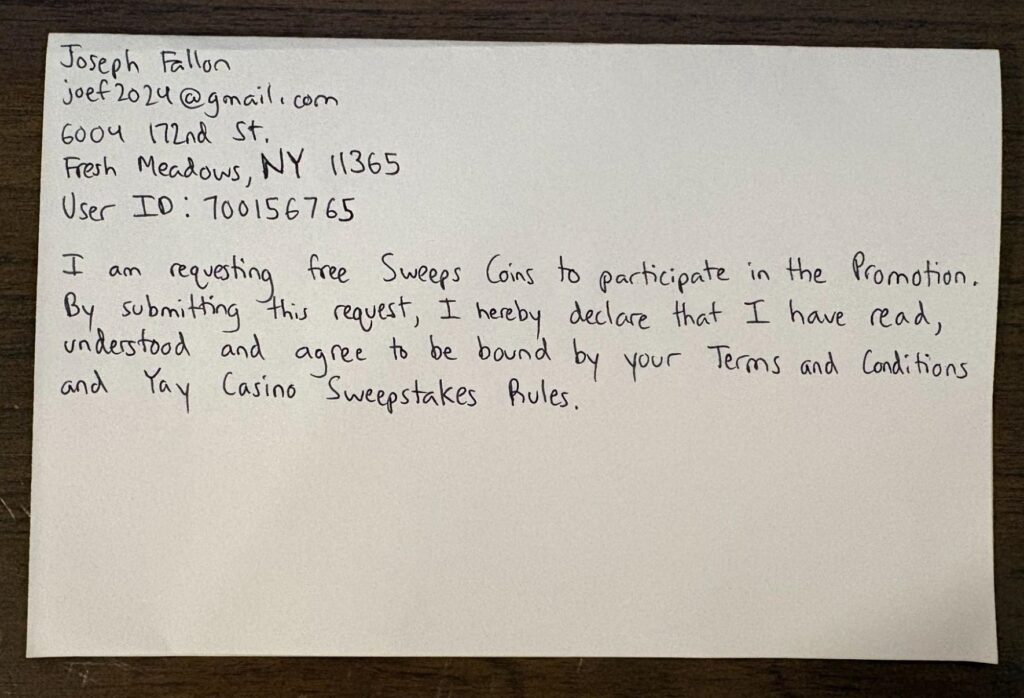 Joseph Fallon
joef2024@gmail.com
6004 172nd St.
Fresh Meadows, NY 11365
User ID: 700156765
I am requesting free Sweeps Coins to participate in the Promotion.
By submitting this request, I hereby declare that I have read,
understood and agree to be bound by your Terms and Conditions
and Yay Casino Sweepstakes Rules.